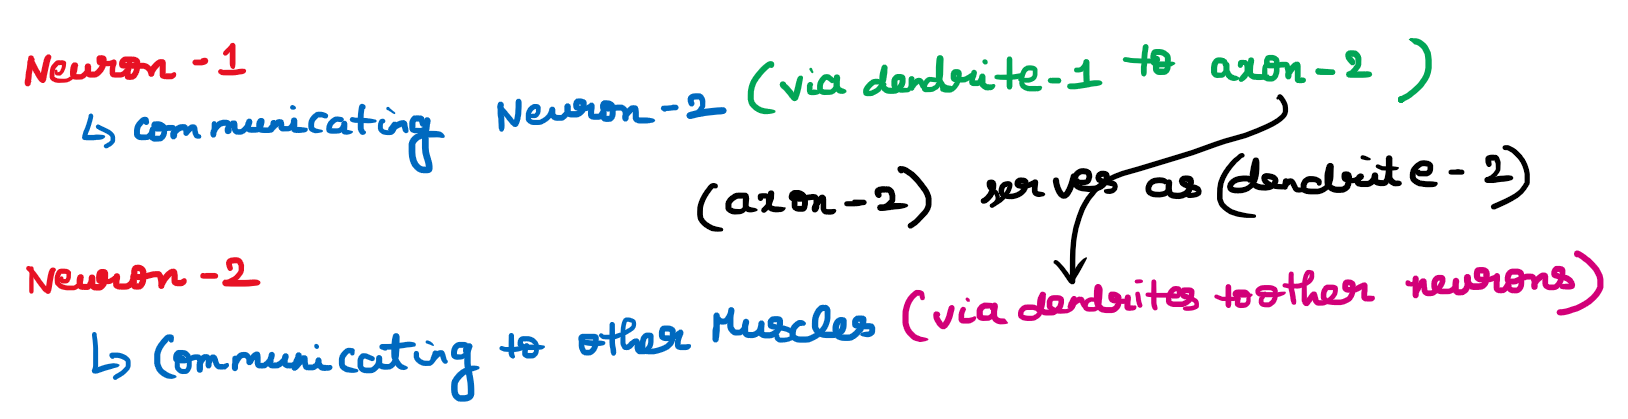 Neuron - 1
↳ communicating Neuron - 2 (via dendrite - 1 to axon - 2)
(axon - 2) serves as (dendrite - 2)
Neuron - 2
↳ Communicating to other Muscles (via dendrites to other neurons)